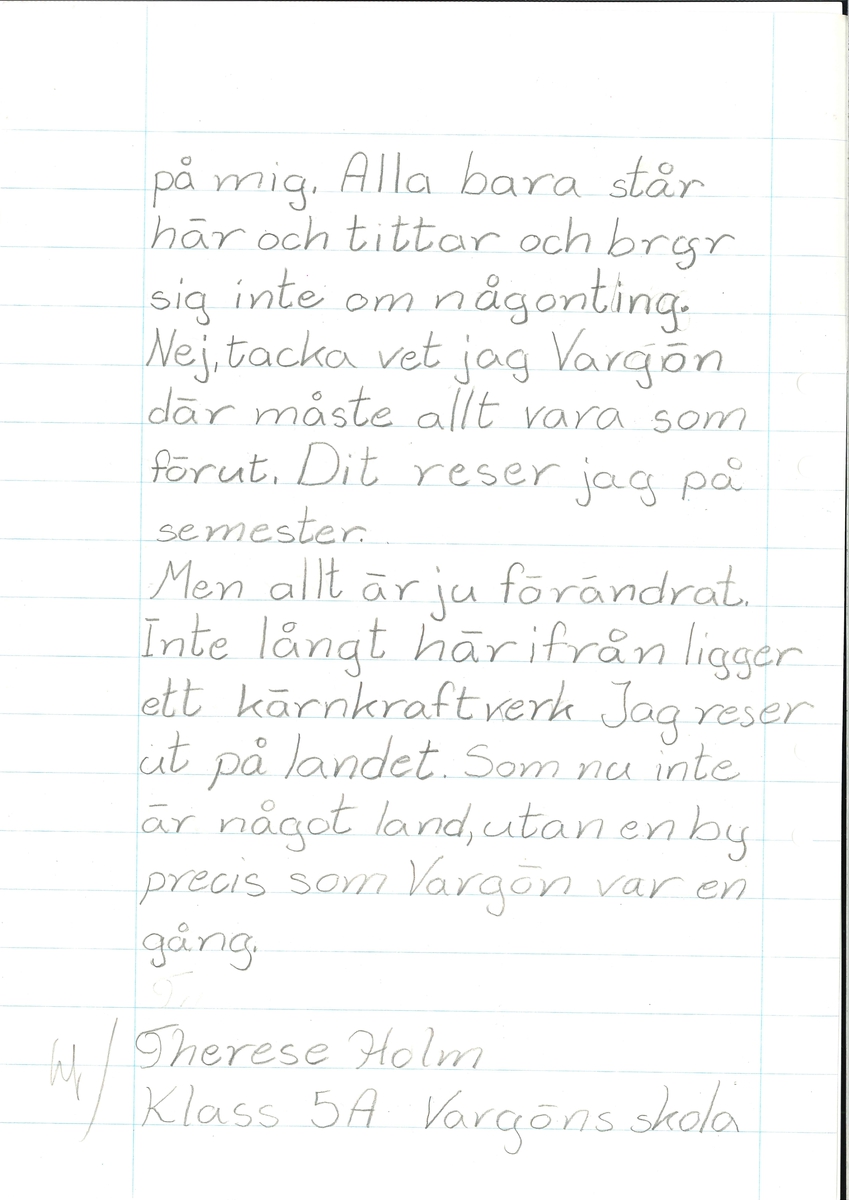 på mig. Alla bara står
här och tittar och brgr
sig inte om någonting.
Nej, tacka vet jag Vargön
där måste allt vara som
förut. Dit reser jag på
semester.
Men allt är ju förändrat.
Inte långt här ifrån ligger
ett kärnkraftverk Jag reser
ut på landet. Som nu inte
är något land, utan en by
precis som Vargön var en
gång.
Therese Holm
Klass 5A Vargöns skola